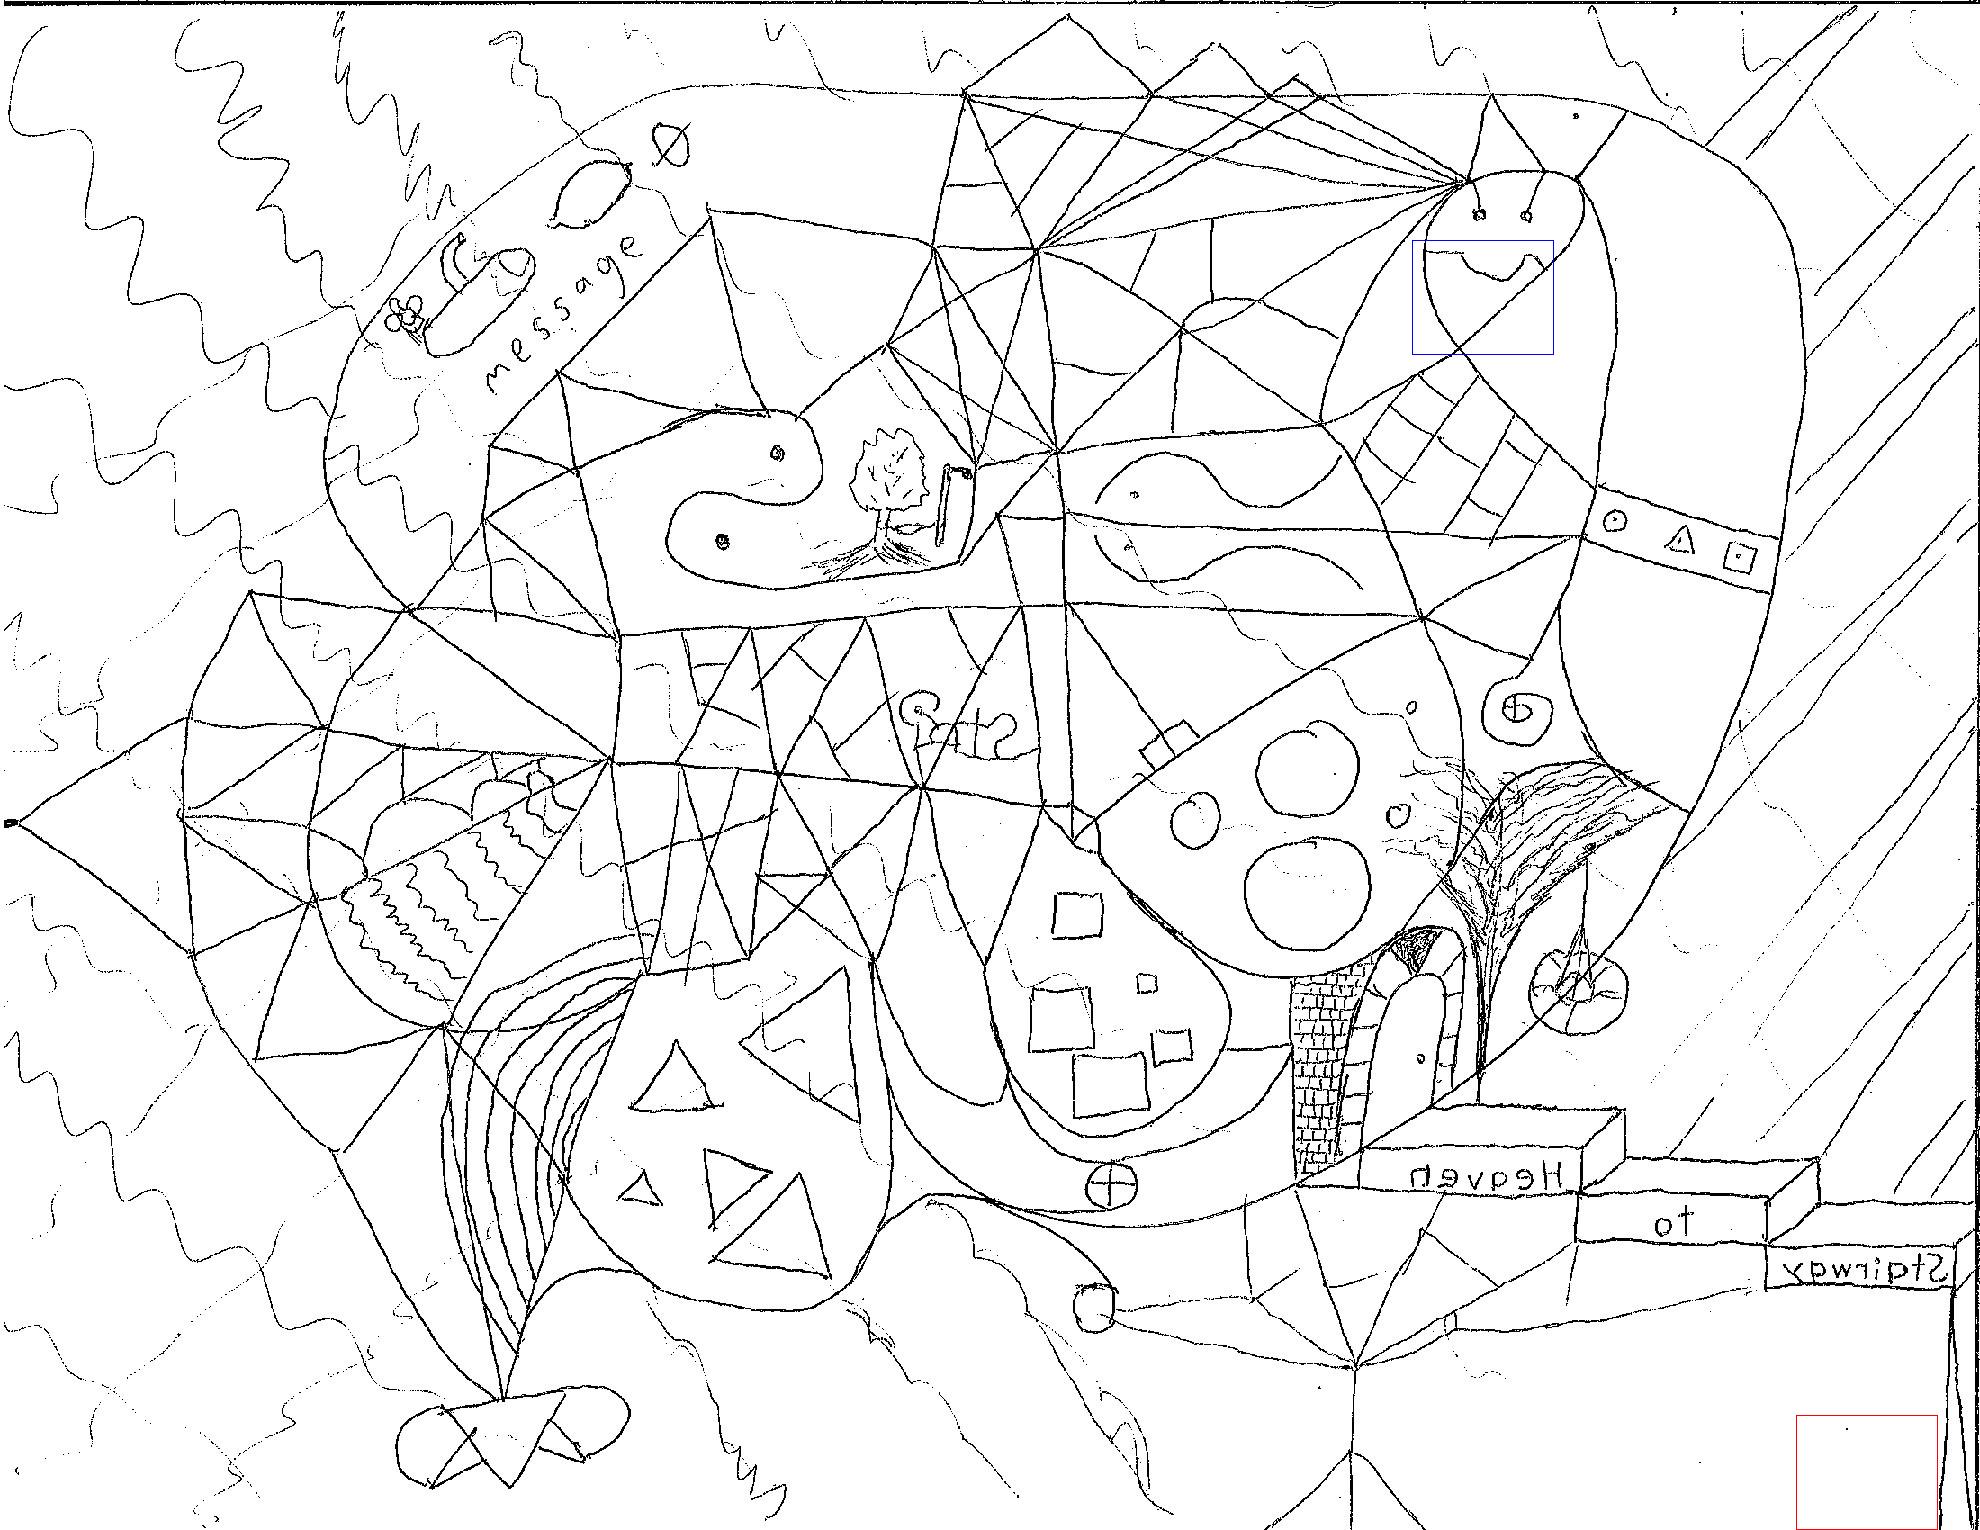 message
Heaven
to
Stairway